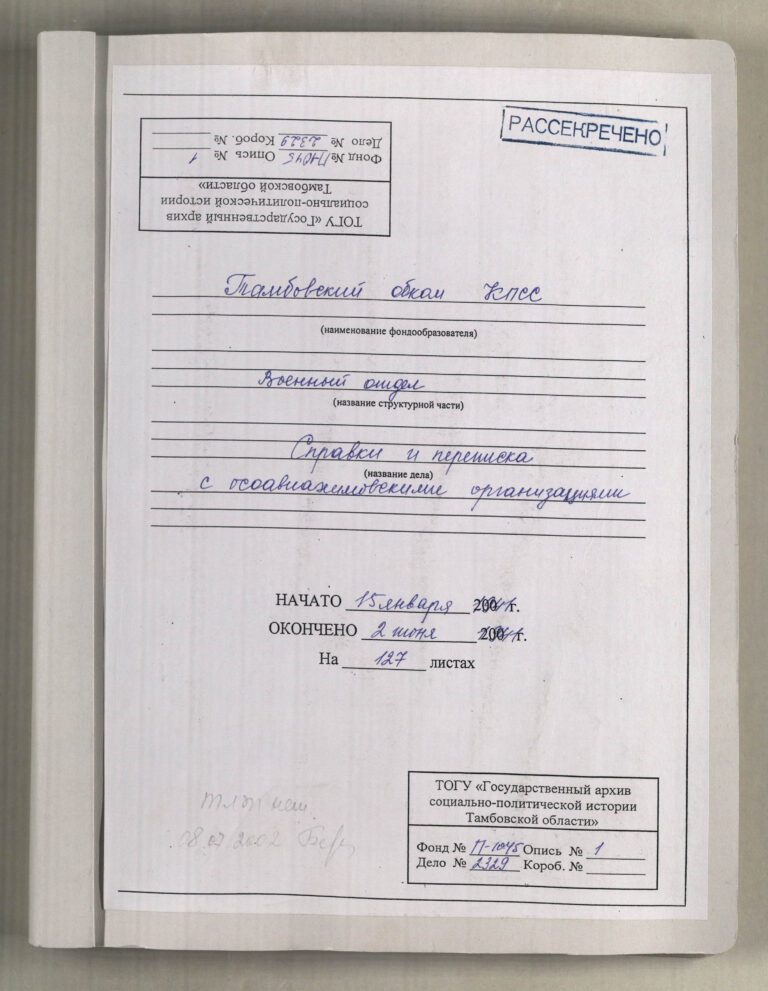 РАССЕКРЕЧЕНО
ТОГУ «Государственный архив
социально-политической истории
Тамбовской области»
Фонд № П-1045 Опись № 1
Дело № 2329 Короб. №
Тамбовский обком КПСС
(наименование фондообразователя)
Военный отдел
(название структурной части)
Справки и переписка
(название дела)
с осоавиахимовскими организациями
НАЧАТО 15 января 1941 г.
ОКОНЧЕНО 2 июня 1941 г.
На 127 листах
ТОГУ «Государственный архив
социально-политической истории
Тамбовской области»
Фонд № П-1045 Опись № 1
Дело № 2329 Короб. №